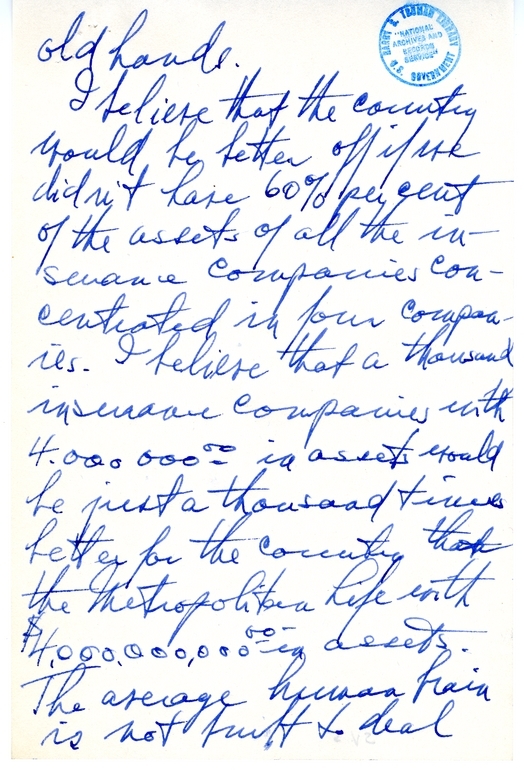 HARRY S. TRUMAN LIBRARY
"NATIONAL
ARCHIVES AND
RECORDS
SERVICE"
U.S. GOVERNMENT
old hands.
I believe that the country
would be better off if we
didn't have 60% per cent
of the assets of all the in-
surance companies con-
centrated in four compan-
ies. I believe that a thousand
insurance companies with
4.000 000 00 in assets would
be just a thousand times
better for the country than
the Metropolitan Life with
$4,000,000,000 00 in assets.
The average human brain
is not built to deal